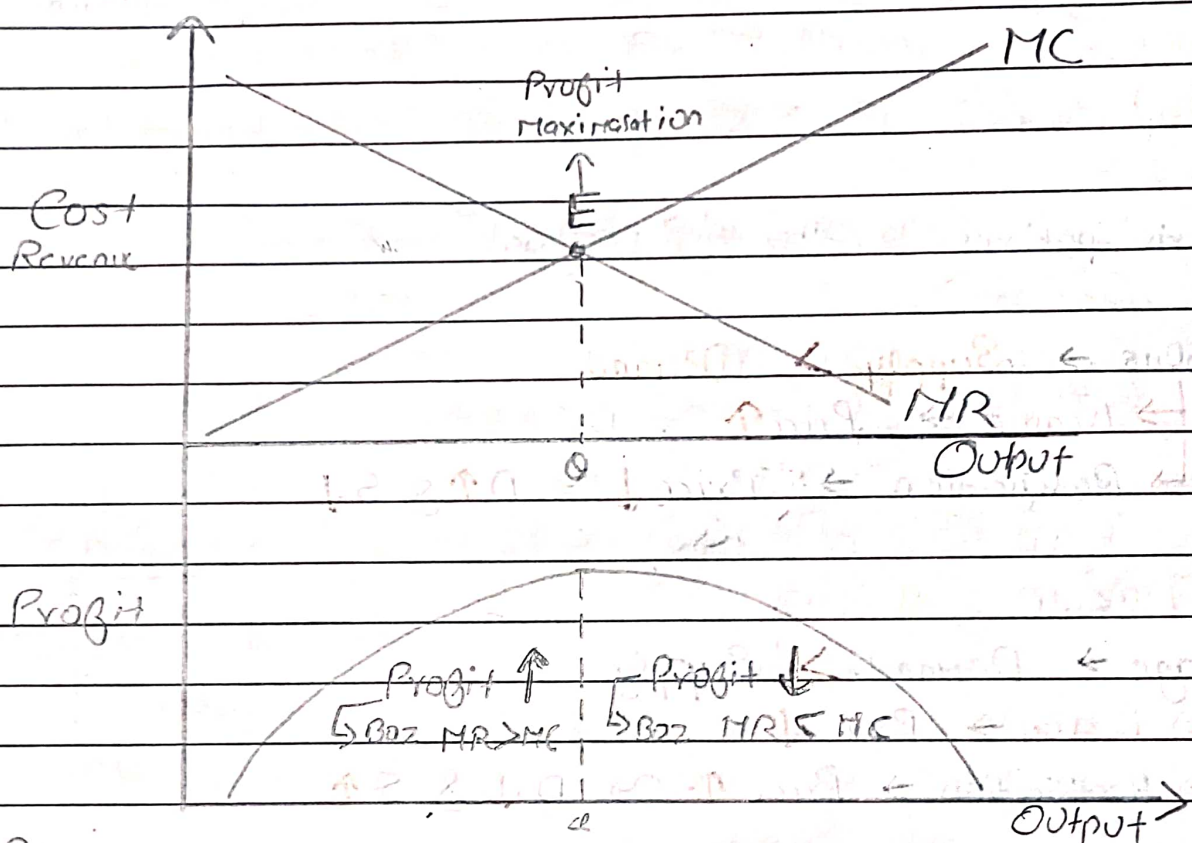 MC
Profit
Maximisation
E
Cost
Revenue
MR
Output
Q
Profit
Profit ↑
↳ Boz MR>MC
Profit ↓
↳ Boz MR < MC
Q
Output